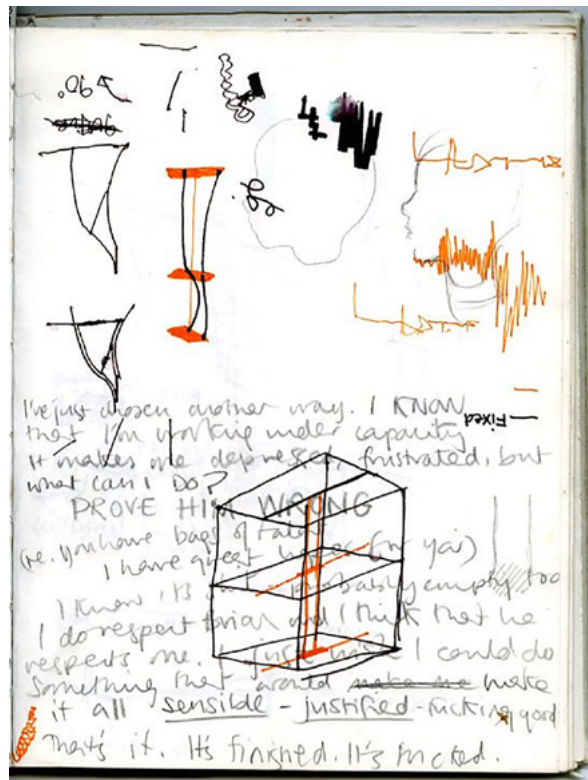 90°
Fixed
I've just chosen another way. I KNOW
that I'm working under capacity
It makes me depressed, frustrated, but
what can I DO?
PROVE HIM WRONG
(i.e. you have bags of talent
I have great hopes for you)
I know, it's just probably empty too
I do respect Brian and I think that he
respects me. I just wish I could do
something that would make me make
it all sensible - justified - fucking good
That's it. It's finished. It's fucked.